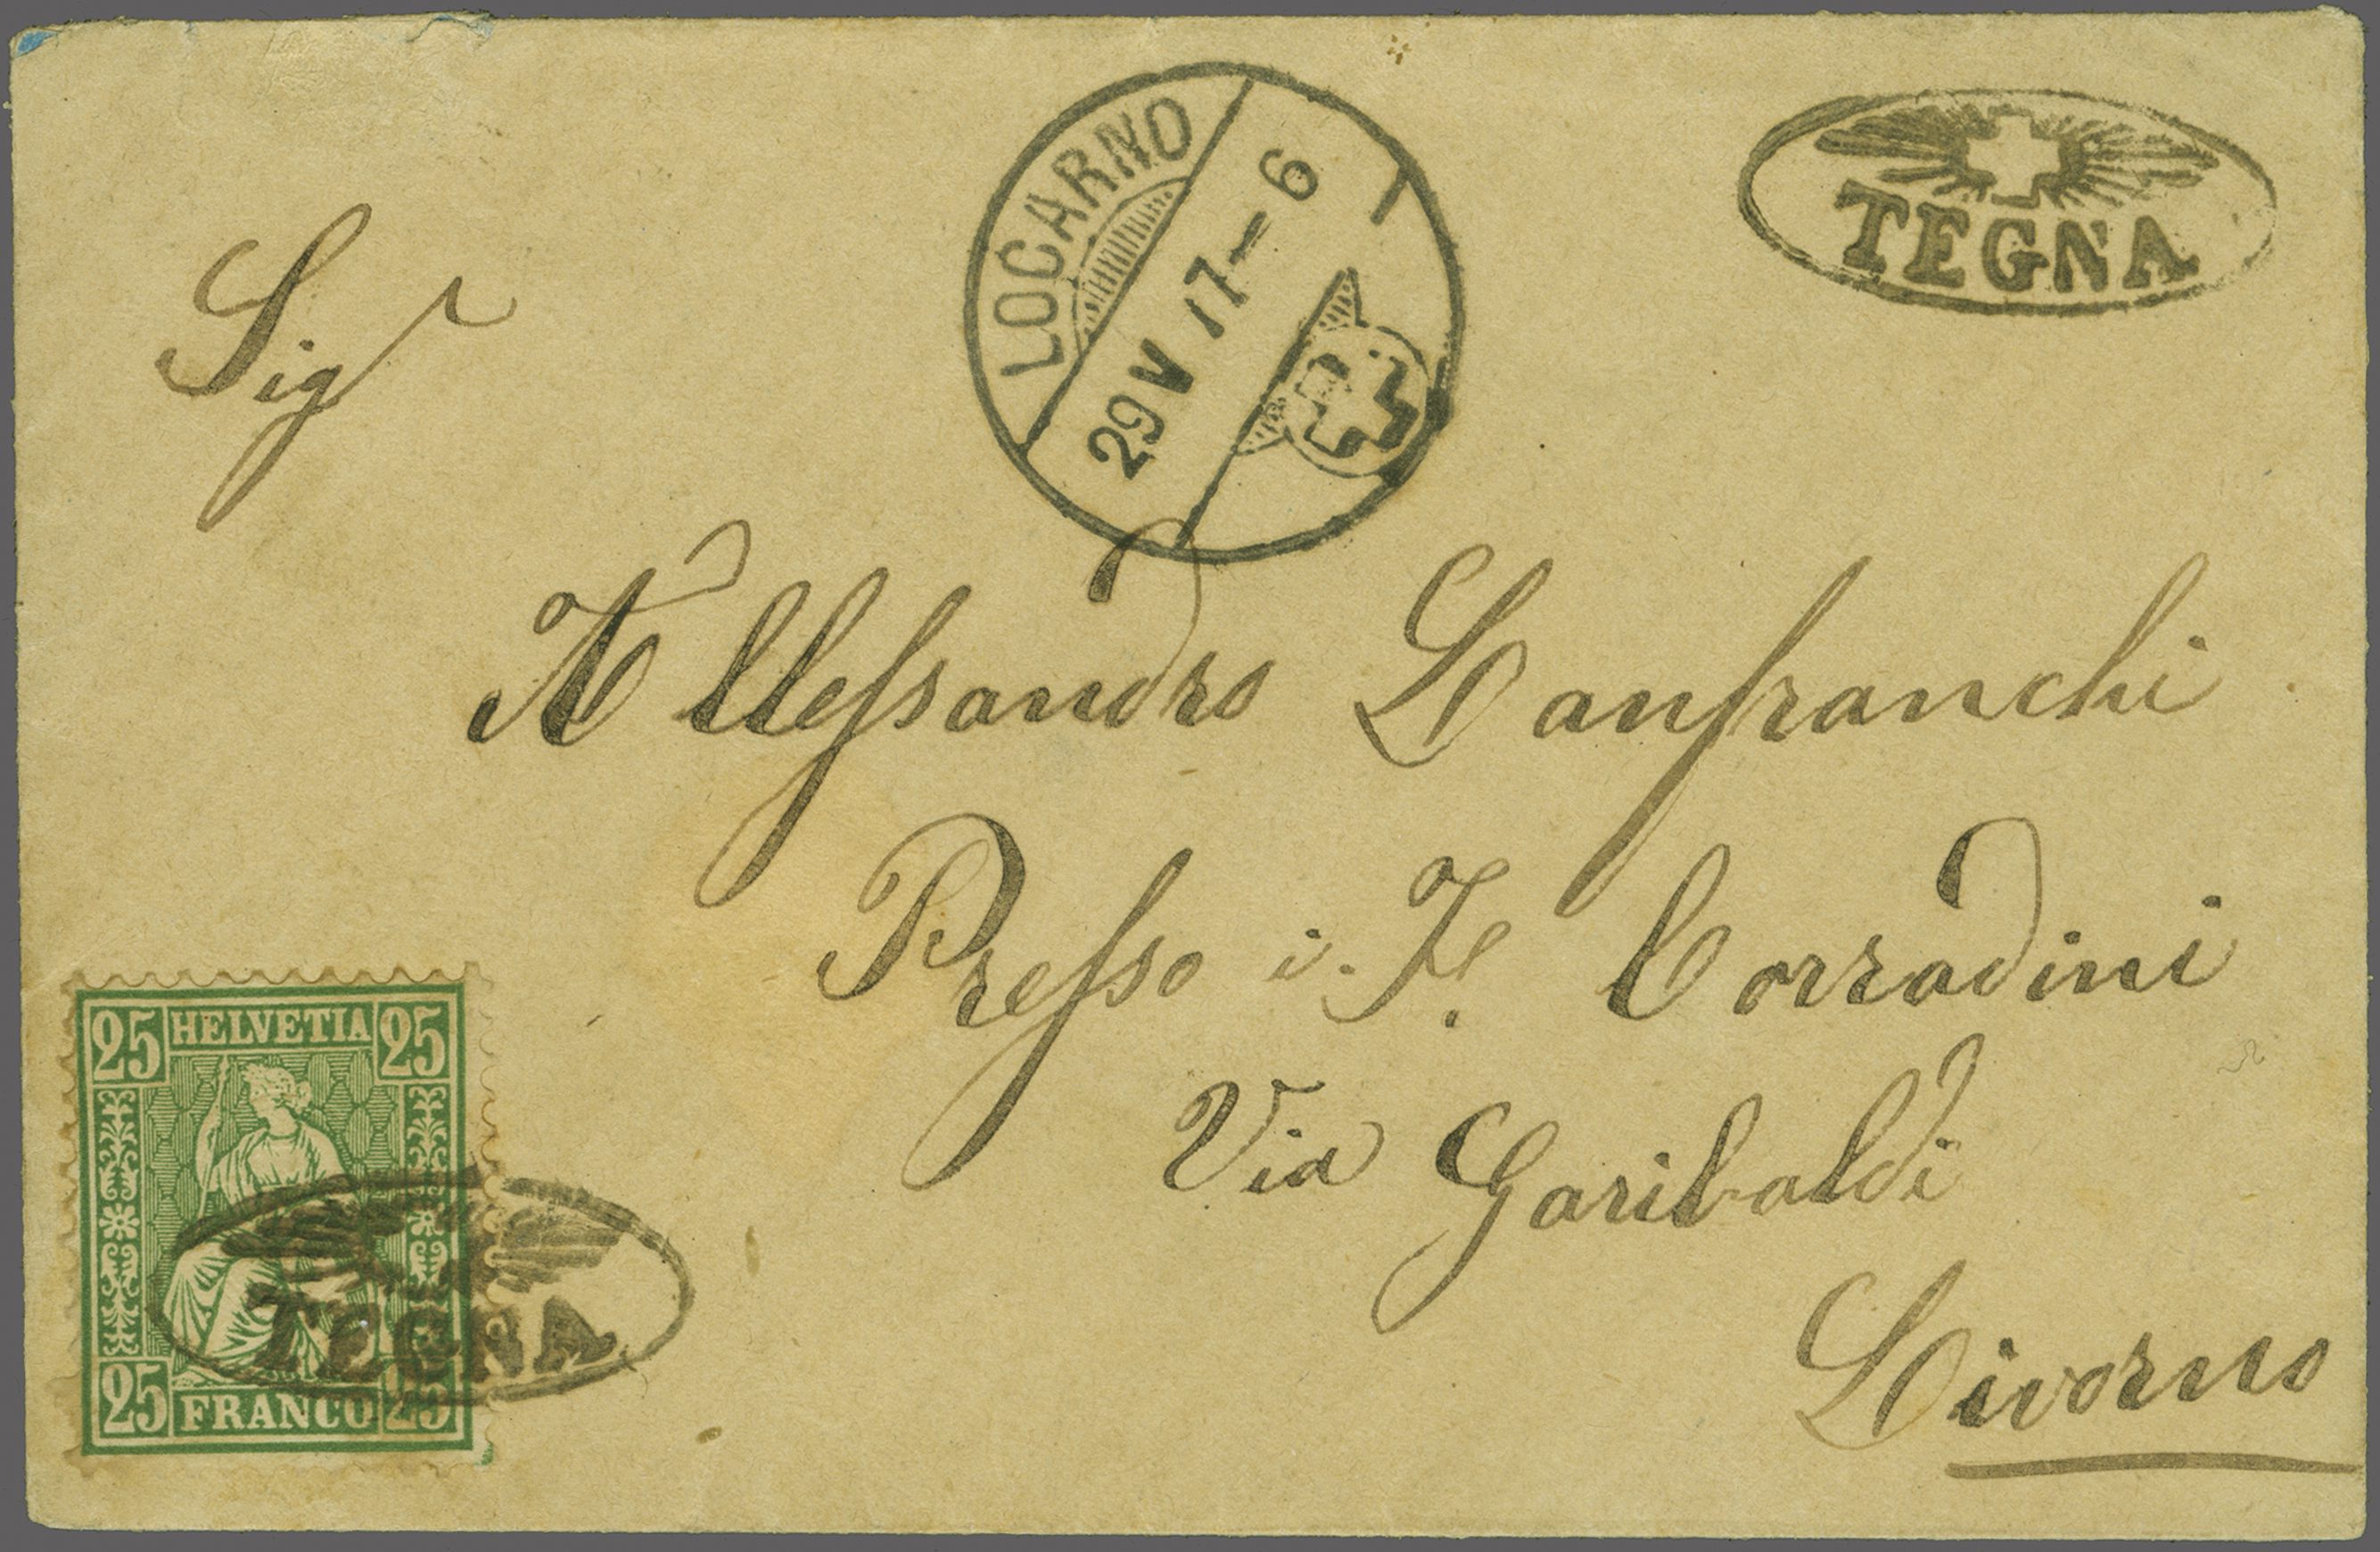 LOCARNO
29 V 77-6
TEGNA
Sigr
Allessandro Lanfranchi
Presso i. Fi. Corradini
Via Garibaldi
Livorno
25 HELVETIA 25
TEGNA
25 FRANCO 25